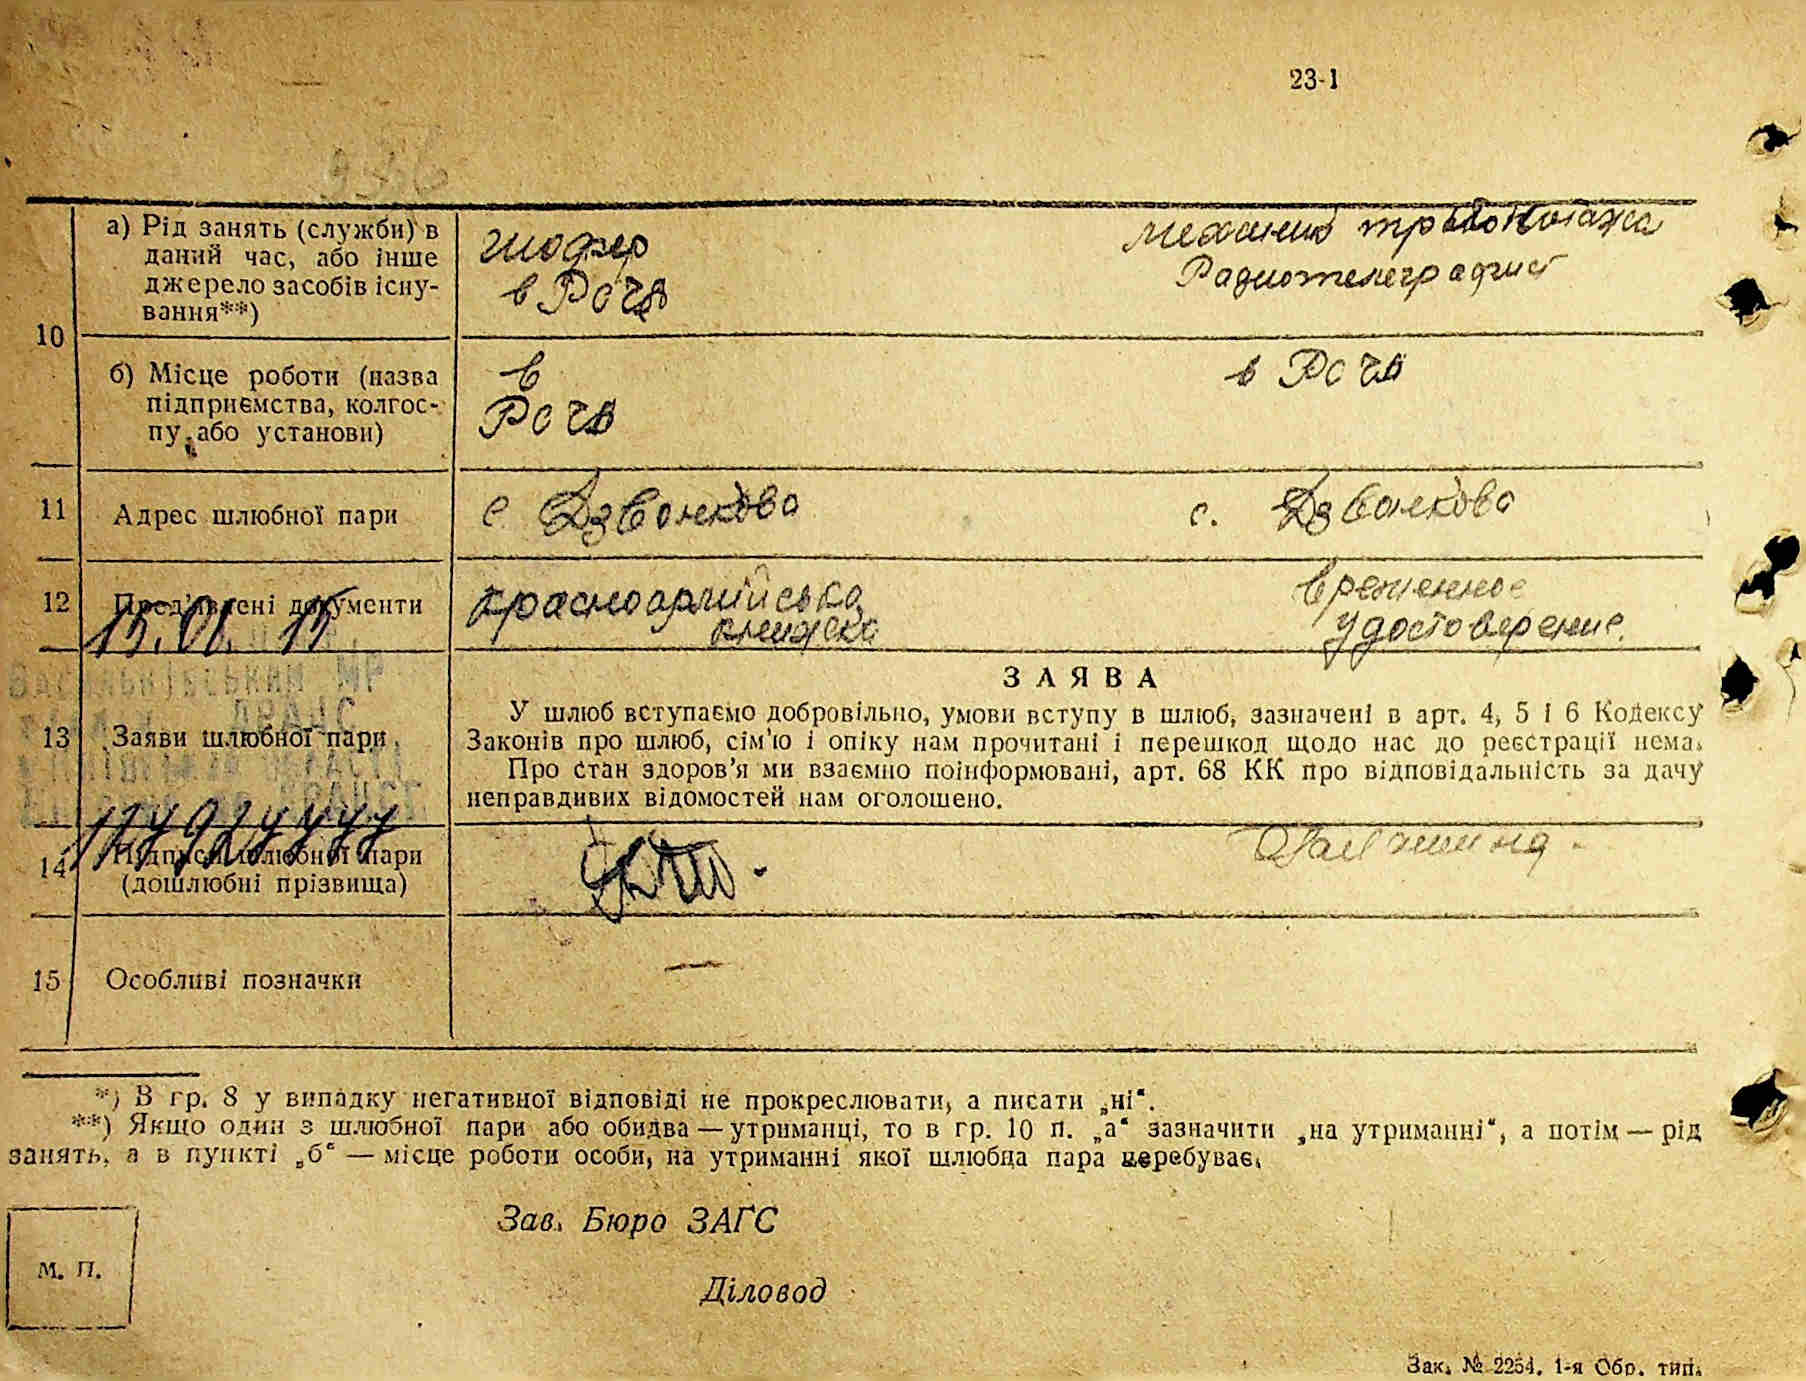 23-1
10
а) Рід занять (служби) в
даний час, або інше
джерело засобів існу-
вання**)
шофер
в РОЧА
Радиотелеграфист
б) Місце роботи (назва
підприємства, колгос-
пу або установи)
в
РОЧА
в РОЧА
11
Адрес шлюбної пари
с Дзвонкова
с. Дзвонкова
12
Пред'явлені документи
Красноармійська
книжка
временное
удостоверение.
15.01.15
Васильківський МР
ДРАЦС
13
Заяви шлюбної пари
ЗАЯВА
У шлюб вступаємо добровільно, умови вступу в шлюб, зазначені в арт. 4, 5 і 6 Кодексу
Законів про шлюб, сім'ю і опіку нам прочитані і перешкод щодо нас до реєстрації нема.
Про стан здоров'я ми взаємно поінформовані, арт. 68 КК про відповідальність за дачу
неправдивих відомостей нам оголошено.
14
Підписи шлюбної пари
(дошлюбні прізвища)
15
Особливі позначки
—
*) В гр. 8 у випадку негативної відповіді не прокреслювати, а писати „ні“.
**) Якщо один з шлюбної пари або обидва — утриманці, то в гр. 10 п. „а“ зазначити „на утриманні“, а потім — рід
занять, а в пункті „б“ — місце роботи особи, на утриманні якої шлюбна пара перебуває.
Зав. Бюро ЗАГС
М. П.
Діловод
Зак. № 2254. 1-я Обр. тип.